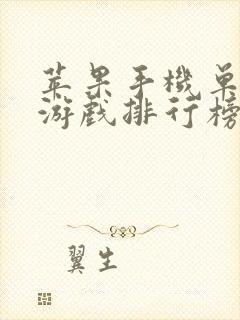 苹果手機单
游戏排行榜
翼生